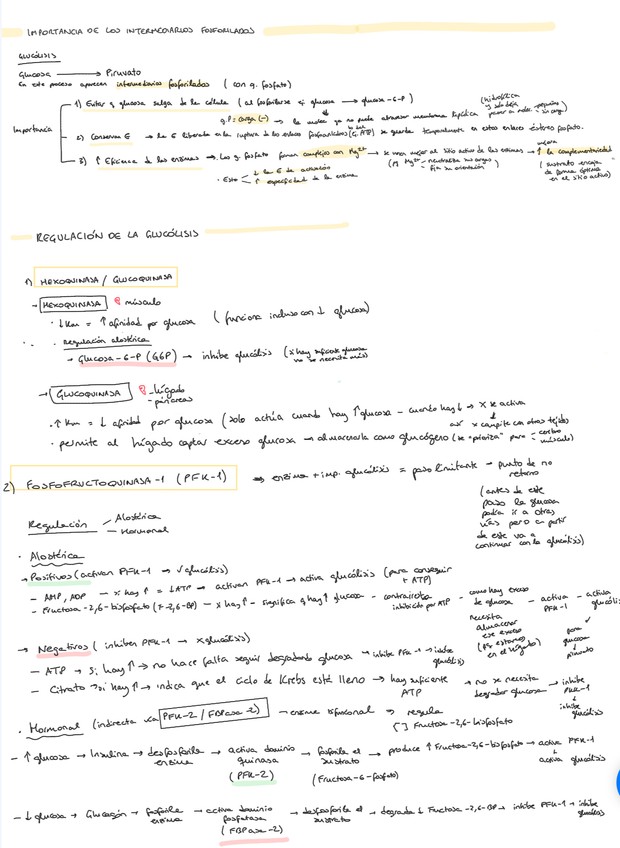 IMPORTANCIA DE LOS INTERMEDIARIOS FOSFORILADOS
GLUCÓLISIS
Glucosa → Piruvato
En este proceso aparecen intermediarios fosforilados (con g. fosfato)
Importancia
1) Evitar q glucosa salga de la célula (al fosforilarse si glucosa → glucosa-6-P)
g.P = carga (-) → la molec ya no puede atravesar membrana lipídica (hidrofílica y solo deja pasar a molec. pequeñas sin carga)
2) Conserva E → la E liberada en la ruptura de los enlaces fosfoanhídridos (ATP) se guarda temporalmente en estos enlaces ésteres fosfato.
3) ↑ Eficiencia de las enzimas → Los g. fosfato forman complejos con Mg2+ → se unen mejor al sitio activo de las enzimas → mejora ↑ la complementariedad
(Mg2+ - neutraliza sus cargas - fija su orientación)
(sustrato encaja de forma óptima en el sitio activo)
· Esto ↓ la E de activación
↑ especificidad de la enzima
REGULACIÓN DE LA GLUCÓLISIS
1) HEXOQUINASA / GLUCOQUINASA
→ HEXOQUINASA músculo
· ↓Km = ↑ afinidad por glucosa (funciona incluso con ↓ glucosa)
· Regulación alostérica
→ Glucosa-6-P (G6P) → inhibe glucólisis (si hay suficiente glucosa no se necesita más)
→ GLUCOQUINASA - hígado
- páncreas
· ↑ Km = ↓ afinidad por glucosa (solo actúa cuando hay ↑glucosa - cuando hay ↓ → X se activa
así x compite con otros tejidos
· permite al hígado captar exceso glucosa → almacenarla como glucógeno (se "prioriza" para - cerebro - músculo)
2) FOSFOFRUCTOQUINASA-1 (PFK-1) → enzima + imp. glucólisis = paso limitante - punto de no retorno
(antes de este paso la glucosa podía ir a otras vías pero a partir de este va a continuar con la glucólisis)
Regulación - Alostérica
- Hormonal
· Alostérica
→ Positivos (activan PFK-1 → √ glucólisis)
- AMP, ADP - si hay ↑ = ↓ATP → activan PFK-1 → activa glucólisis (para conseguir + ATP)
- Fructosa-2,6-bisfosfato (F-2,6-BP) - si hay ↑ - significa q hay ↑ glucosa - contrarresta inhibición por ATP - como hay exceso de glucosa - activa PFK-1 - activa glucólisis
necesita almacenar ese exceso (pq estamos en el hígado)
para glucosa ↓ piruvato
→ Negativos (inhiben PFK-1 → x glucólisis)
- ATP → si hay ↑ → no hace falta seguir degradando glucosa → inhibe PFK-1 → inhibe glucólisis
- Citrato → si hay ↑ → indica que el ciclo de Krebs está lleno → hay suficiente ATP → no se necesita degradar glucosa → inhibe PFK-1 ↓ inhibe glucólisis
· Hormonal (indirecta via PFK-2 / FBPasa-2) → enzima bifuncional → regula [ ] Fructosa-2,6-bisfosfato
- ↑ glucosa → Insulina → desfosforila enzima → activa dominio quinasa (PFK-2) → fosforila el sustrato (Fructosa-6-fosfato) → produce ↑ Fructosa-2,6-bisfosfato → activa PFK-1 ↓ activa glucólisis
- ↓ glucosa → Glucagón → fosforila enzima → activa dominio fosfatasa (FBPasa-2) → desfosforila el sustrato → degrada ↓ Fructosa-2,6-BP → inhibe PFK-1 → inhibe glucólisis